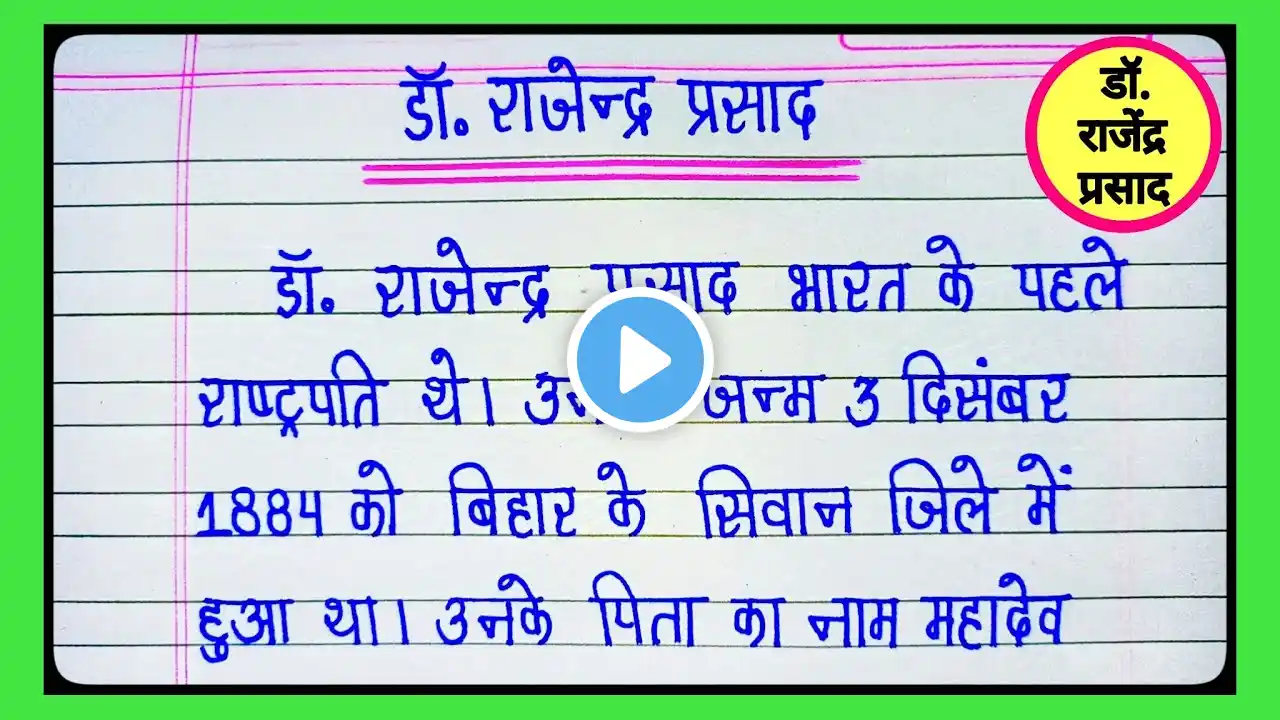 डॉ. राजेन्द्र प्रसाद
डॉ.
राजेंद्र
प्रसाद
डॉ. राजेन्द्र प्रसाद भारत के पहले
राष्ट्रपति थे। जन्म 3 दिसंबर
1884 को बिहार के सिवान जिले में
हुआ था। उनके पिता का नाम महादेव